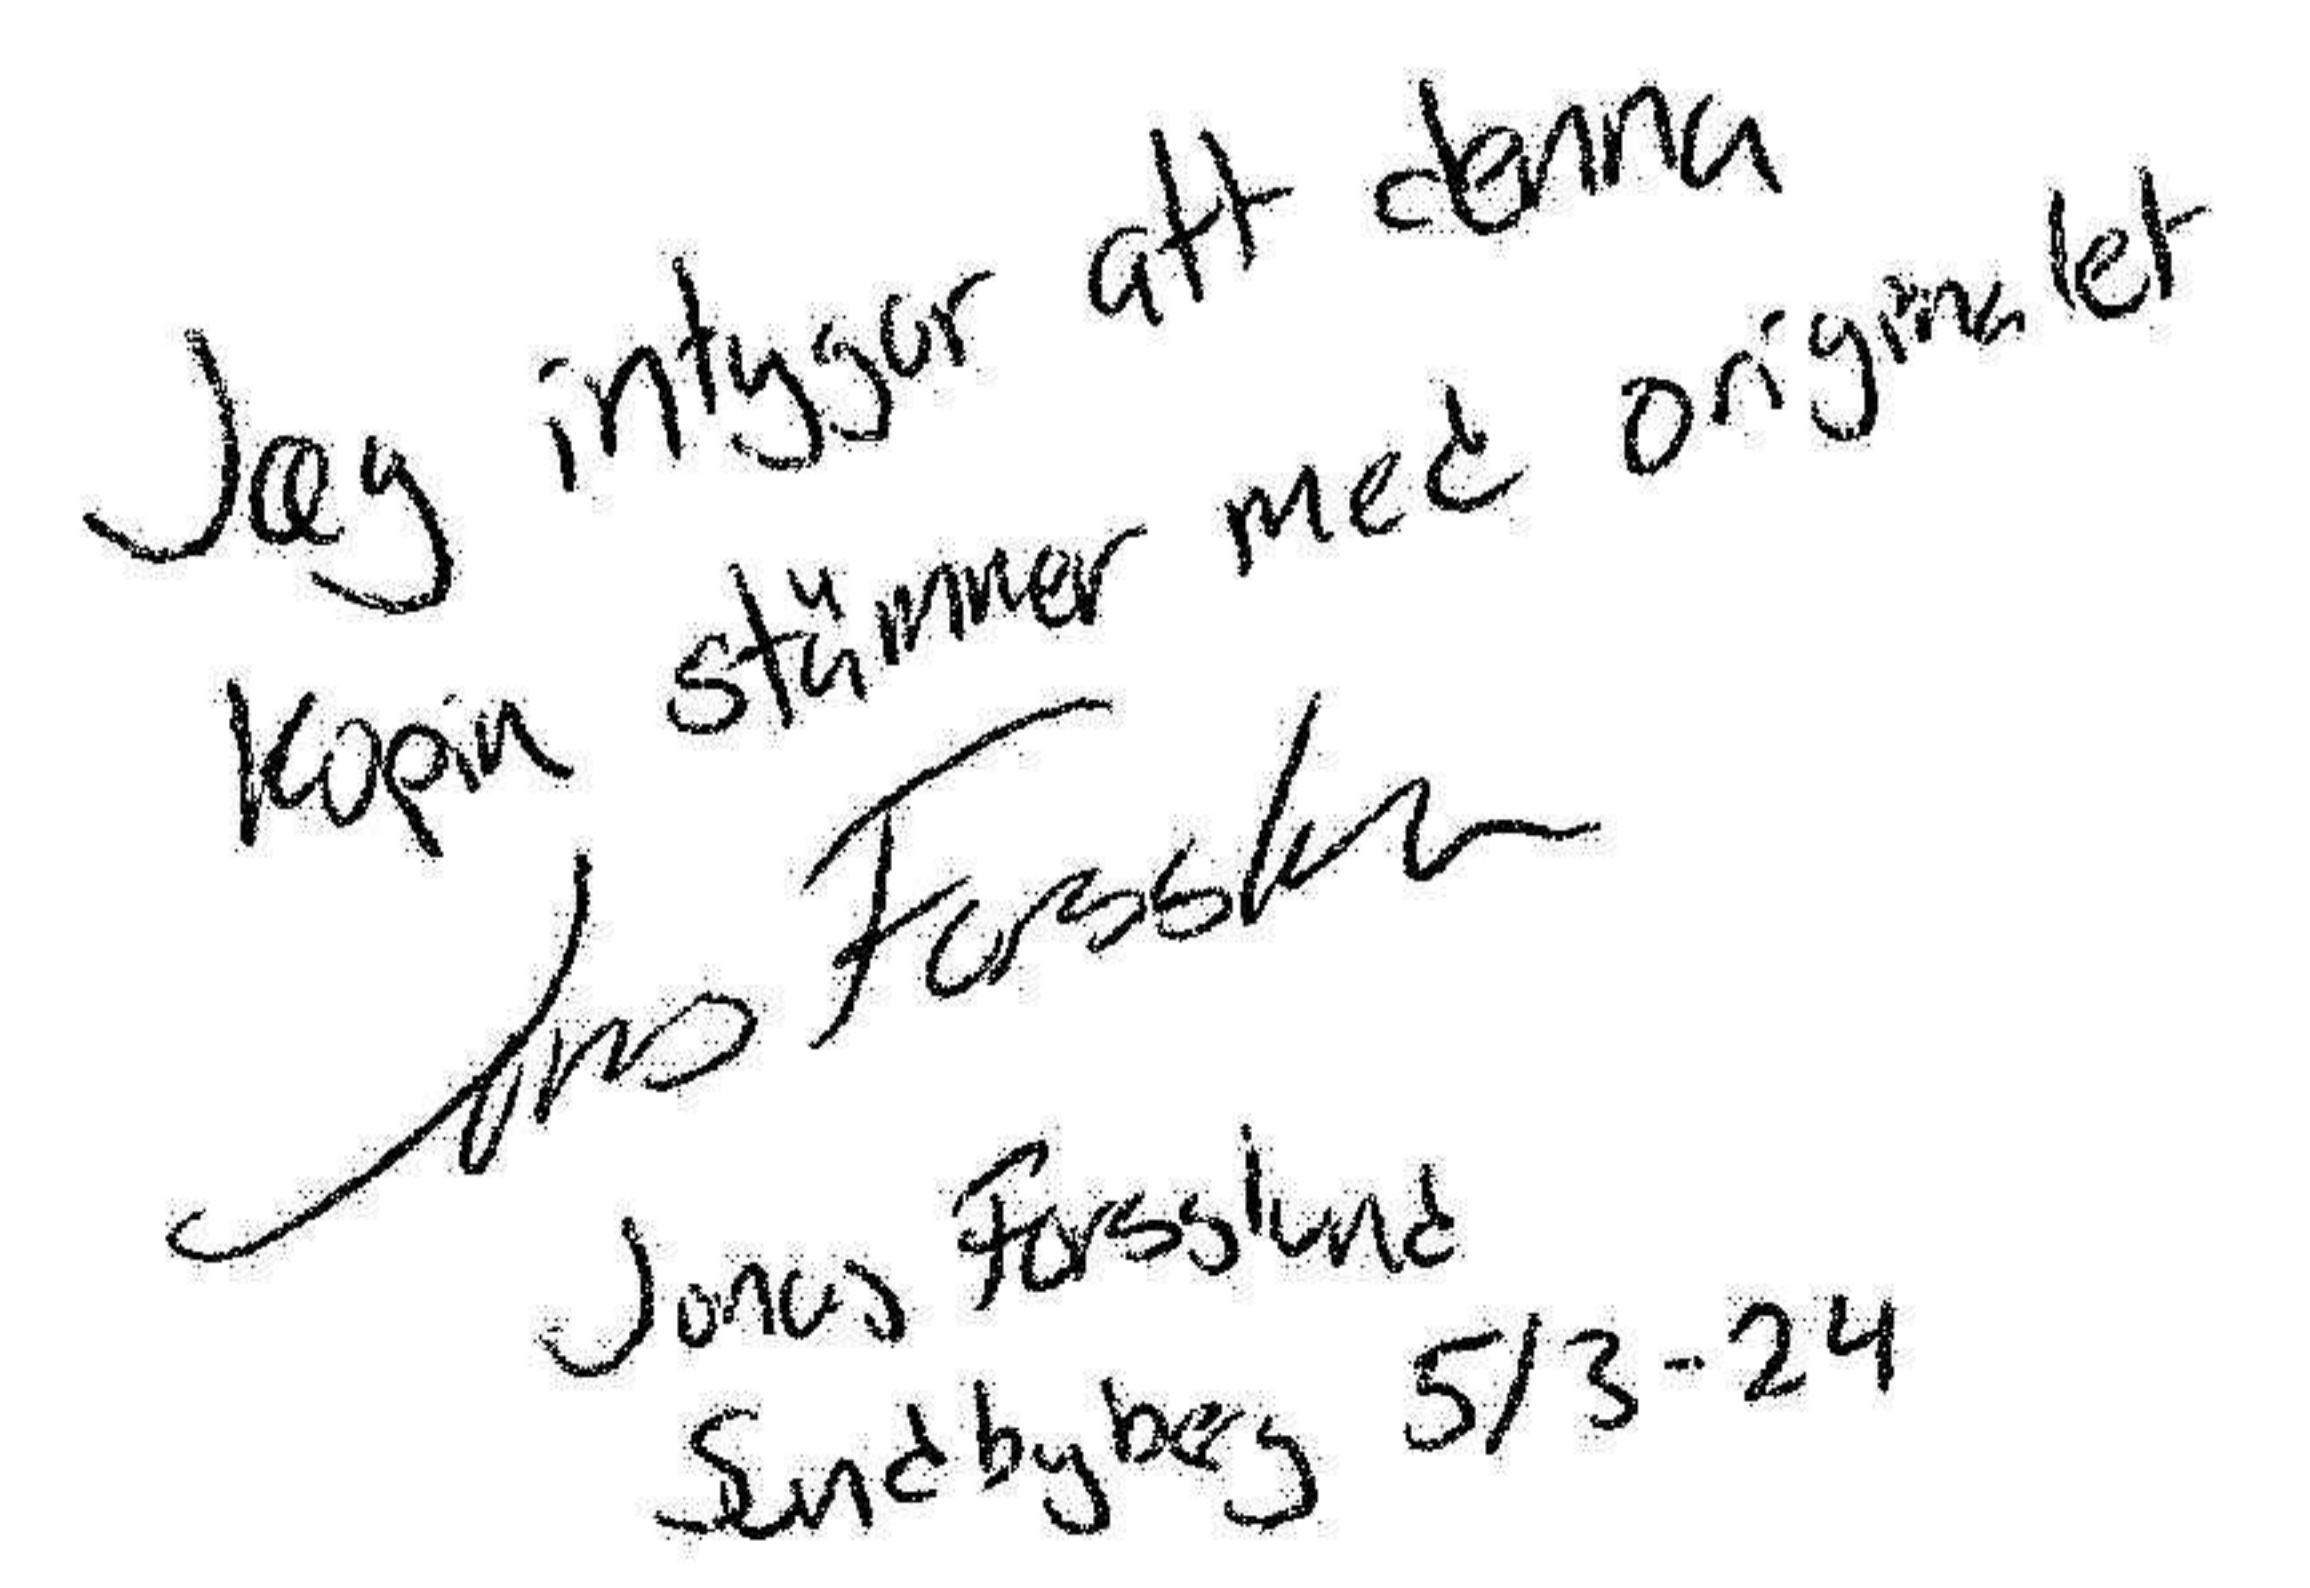 Jag intygar att denna
kopin stämmer med originalet
Jonas Forsslund
Jonas Forsslund
Sundbyberg 5/3-24